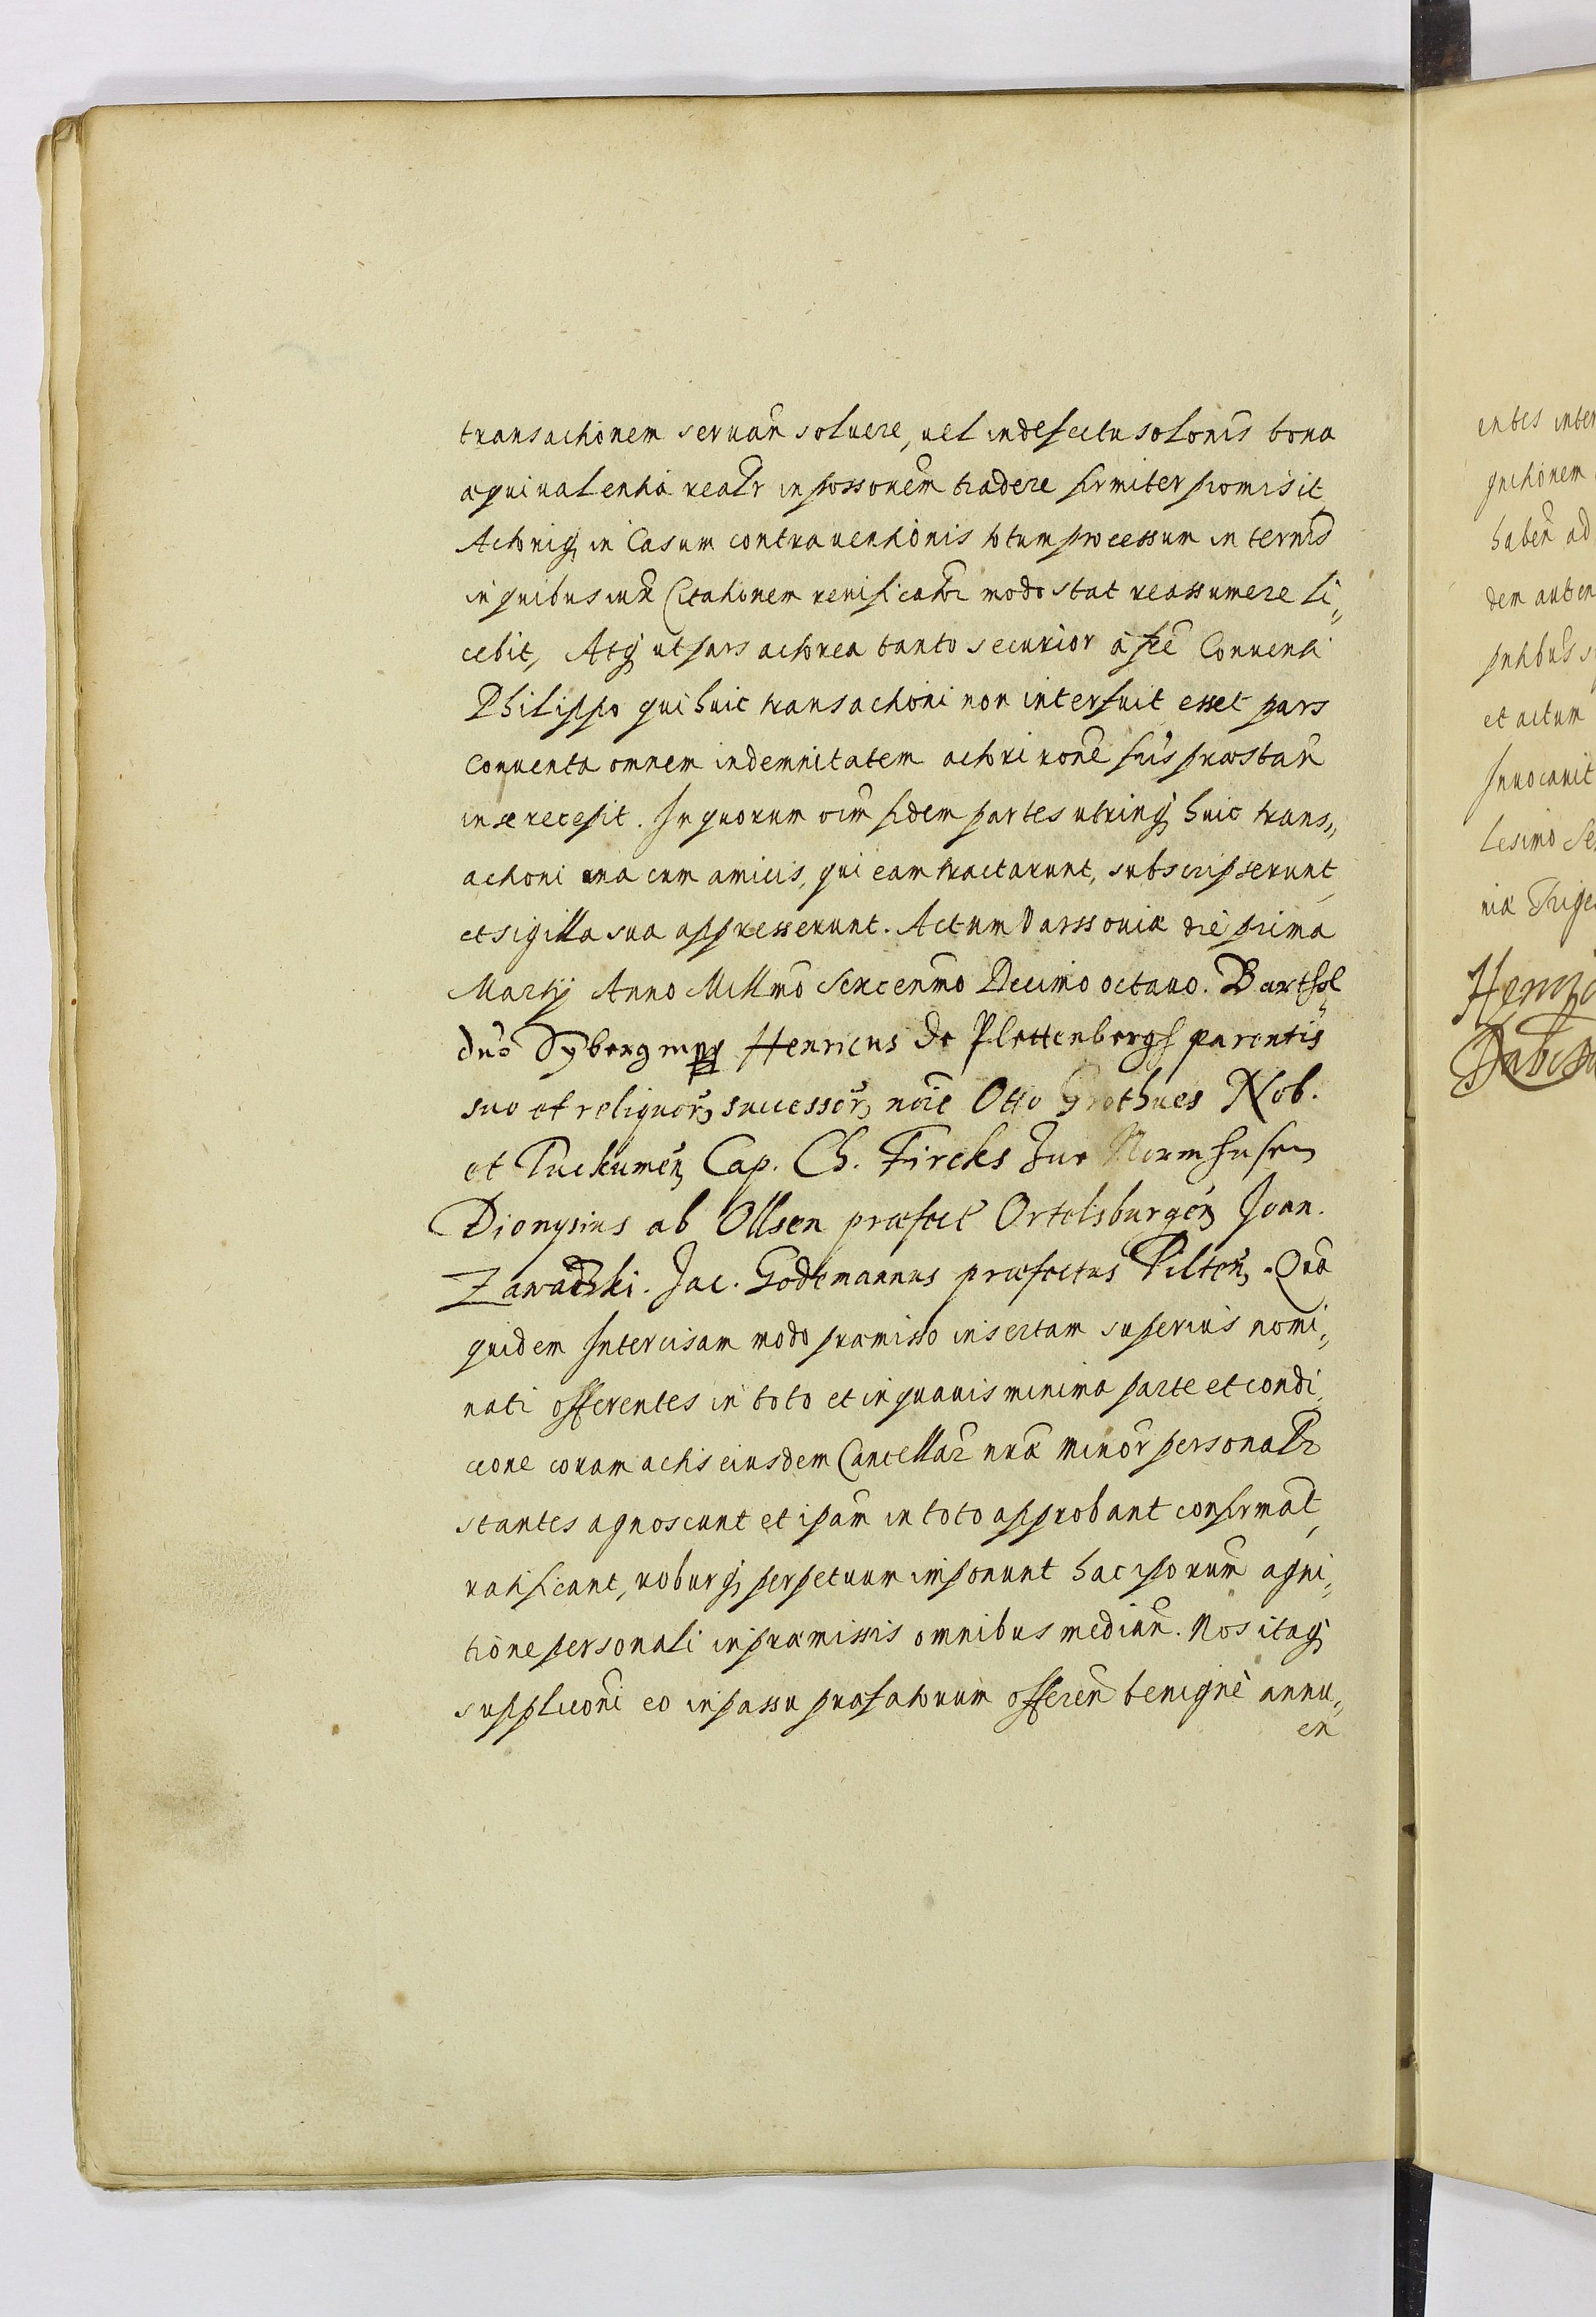 transactionem servan̄ soluere, uel in defectu solonīs bona
æquiualentia realr̄ in possonem̄ tradere firmiter promisit
Actoriq, in Casum contrauentionis totum processum in termīs
in quibus iux̄ Citationem verificator̄ modo stat reassumere li„
cebit, Atq, ut pars actorea tanto securior à fr̄e Conuenti
Philippo qui huic transactioni non interfuit esset pars
conuenta omnem indemnitatem actori rone fr̄is præstan̄
in se recepit. In quorum oim̄ fidem partes utrinq, huic trans„
actioni una cum amicis, qui eam tractarunt, subscripserunt
et sigilla sua appresserunt. Actum Varssouiæ die prima
Martij Anno Millmo Sexcenmo Decimo octauo. Barthol
dus Syberg mpp Henricus de Plettenbergh parentis
suo et reliquor̄, successor̄, noīe Otto Grothues Nob.
et Tuckumen̄, Cap. Ch. Fircks Zur Nurmhusen
Dionysius ab Ollsen præfect Ortelsburgen̄, Joan.
Zawadzki. Jac. Godtmannus præfectus Pilten̄, Quā
quidem Intercisam modo præmisso insertam superius nomi„
nati offerentes in toto et in quauis minima parte et condi„
cione coram actis eiusdem Cancellar̄ nrǣ minor̄ personalr̄
stantes agnoscunt et ipam̄ in toto approbant confirmat̄,
ratificant, roburq, perpetuum imponunt hac ipsorum̄ agni„
tione personali in præmissis omnibus median̄. Nos itaq,
suppliconi eo in passu præfatorum offeren̄ benignè annu„
en
entes inter
haben̄ ad
dem auten
et actum
Inuocauit
lesimo Se
niæ Trige